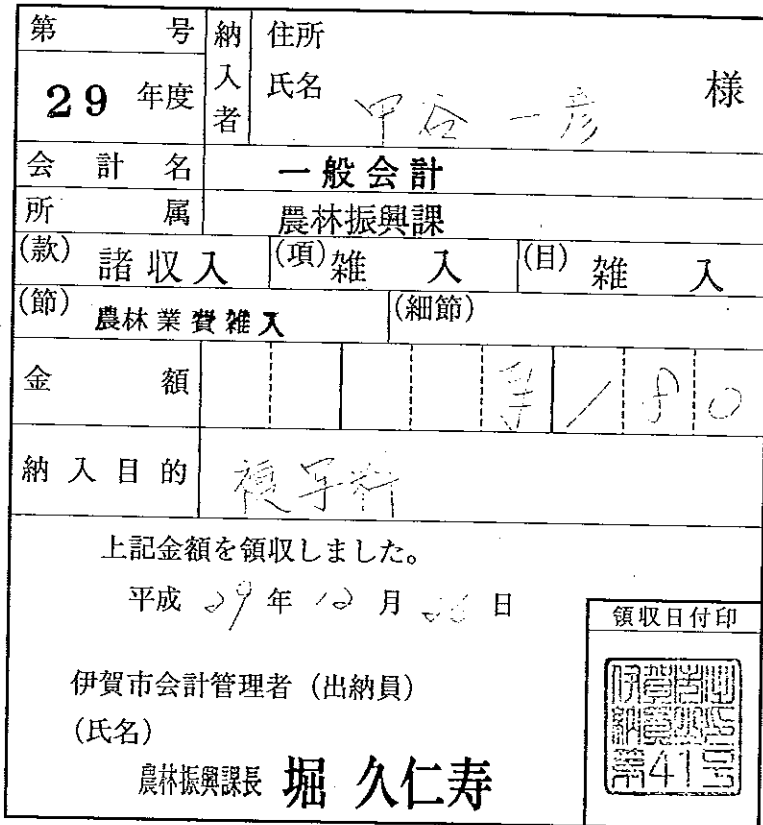 第 号
29 年度
納入者
住所
氏名 甲谷 一彦 様
会計名 一般会計
所属 農林振興課
(款) 諸収入 (項) 雑入 (目) 雑入
(節) 農林業費雑入 (細節)
金額 ¥180
納入目的 複写料
上記金額を領収しました。
平成 29 年 12 月 26 日
領収日付印
伊賀市会計管理者 (出納員)
(氏名)
農林振興課長 堀 久仁寿
第41号